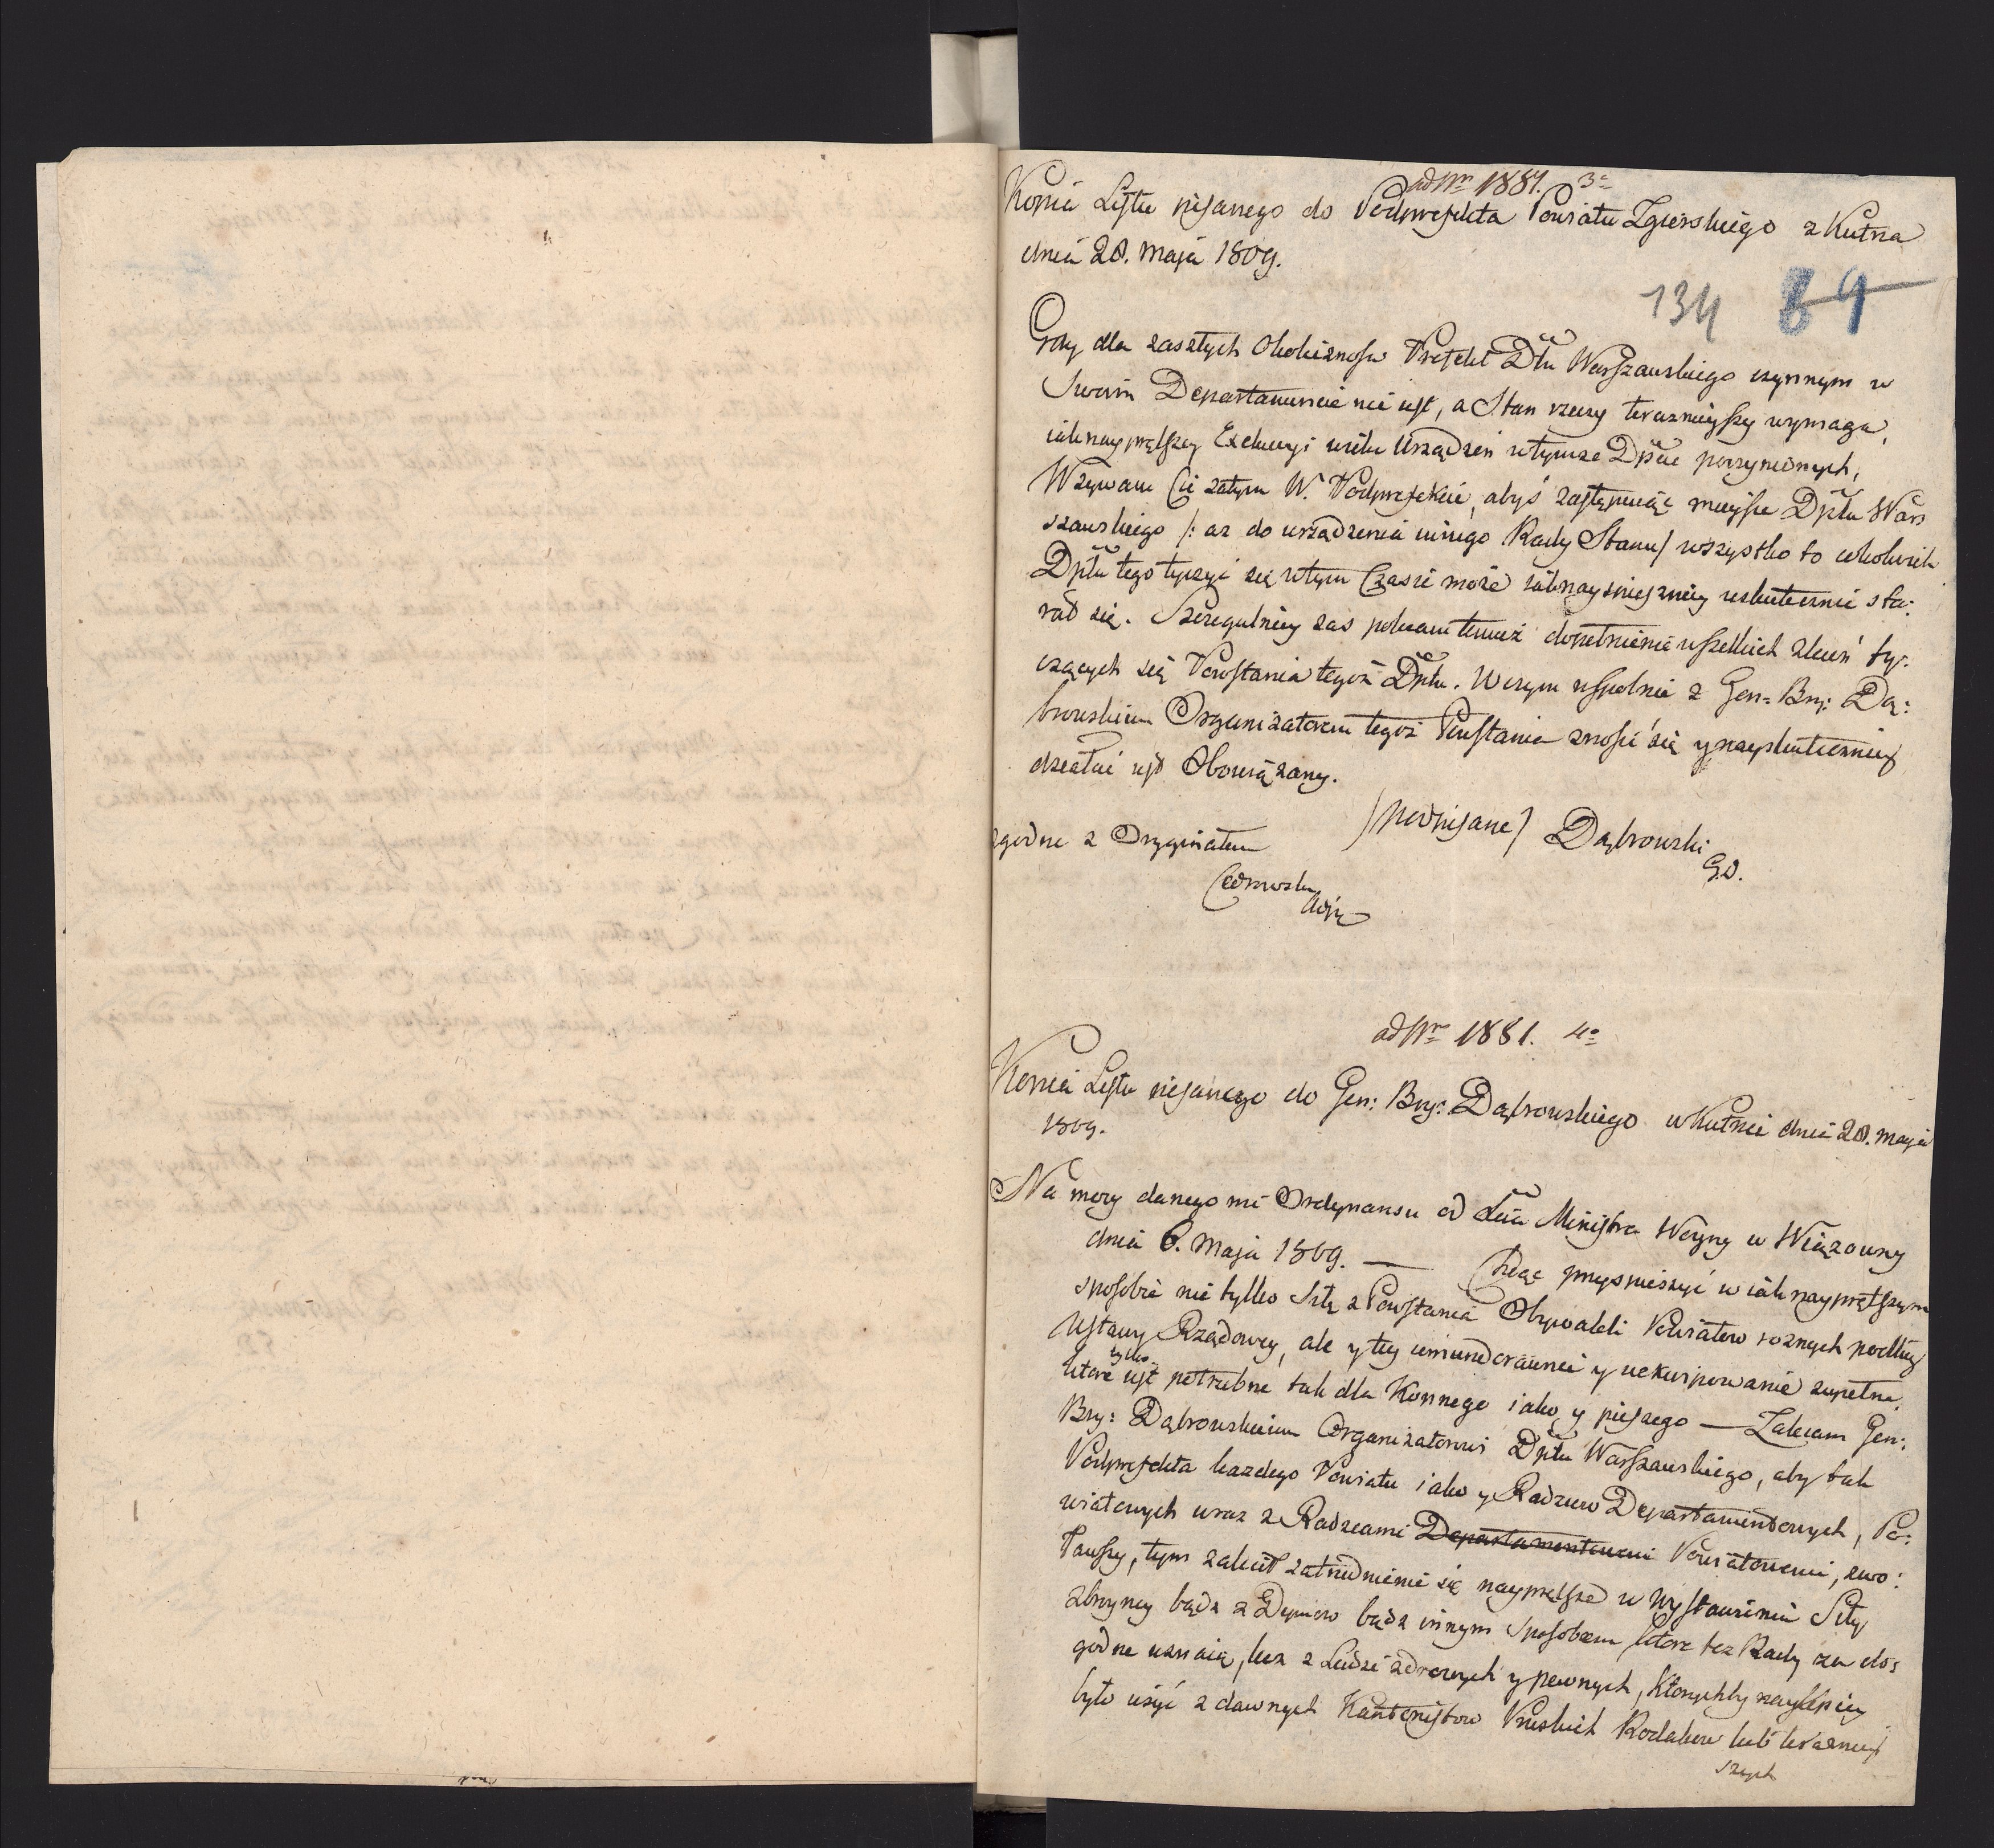 ad Nrm 1881. 3º
Kopia Listu pisanego do Podprefekta Powiatu Zgierskiego z Kutna
dnia 28. Maja 1809.
134 89
Gdy dla zaszłych Okolicznosci Prefekt Dptu Warszawskiego czynnym w
Swoim Departamencie nie jest, a Stan rzeczy teraznieyszy wymaga,
iak nayprętszey Exekucyi wielu Urządzen w tymze Dpcie poczynionych,
Wzywam Cię zatym W. Podprefekcie, abyś zastępuiąc mieysce Dptu War
szawskiego /: az do urządzenia innego Rady Stanu/ wszystko to cokolwiek
Dptu tego tyczyć się w tym Czasie może iak nayspieszniey uskutecznić sta:
rał się. Szczegulniey zas polecam temuż dopełnienie wszelkich zleceń ty:
czących się Powstania tegoż Dptu. W czym wspolnie z Gen: Bry: Dą:
browskim Organizatorem tegoż Powstania znosić się y nayskuteczniey
działać jest Obowiązany.
/podpisane/ Dąbrowski
G.D.
zgodne z Oryginałem
Cedrowski
Adju
ad Nrm 1881. 4º
Kopia Listu pisanego do Gen: Bry: Dąbrowskiego w Kutnie dnia 28. Maja
1809.
Na mocy danego mi Ordynansu od Ministra Woyny w Wiązowny
dnia 6. Maja 1809. — Chcąc przyspieszyć w iak nayprętszym
sposobie nie tylko Siłę z Powstania Obywateli Powiatow roznych podług
Ustawy Rządowey, ale y tey umundorowanie y uekwipowanie zupełne,
ktore tylko jest potrzebne tak dla Konnego iako y pieszego — Zalecam Gen:
Bry: Dąbrowskiemu Organizatorowi Dptu Warszawskiego, aby tak
Podprefekta kazdego Powiatu iako y Radzcow Departamentowych, Po:
wiatowych wraz z Radzcami Departamentowemi Powiatowemi, zwo:
ławszy, tym zalecił zatrudnienie się nayprętsze w wystawieniu Siły
zbroyney bądz z Dymow bądz innym Sposobem ktore też Rady za do:
godne uznaią, lecz z Ludzi zdrowych y pewnych, Ktorychby naylepiey
było użyć z dawnych Kantonistow Pruskich Rodakow lub teraznieyj
szych